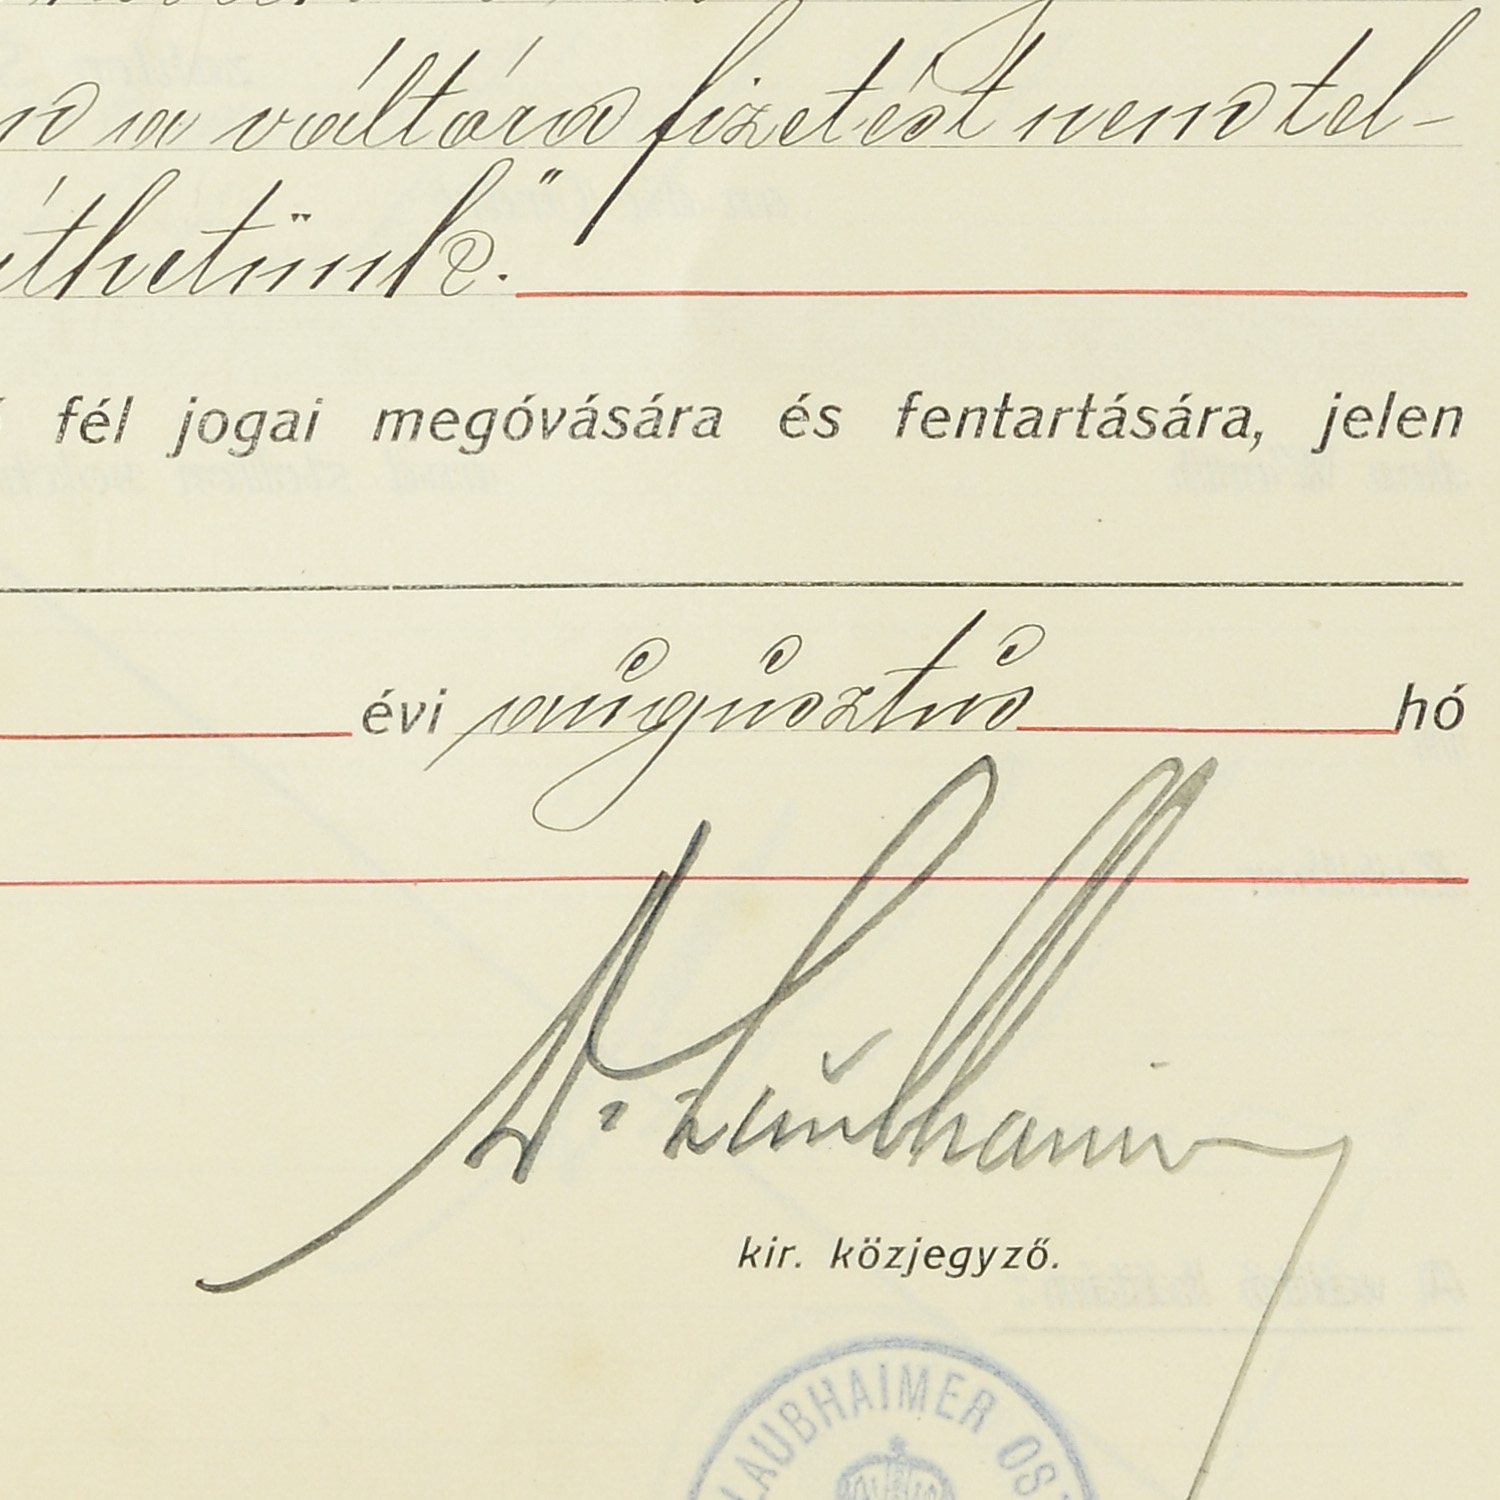 a váltóra fizetést nem tel-
íthetünk."
fél jogai megóvására és fentartására, jelen
évi augusztus hó
Dr. Laubhaimer
kir. közjegyző.
LAUBHAIMER OS